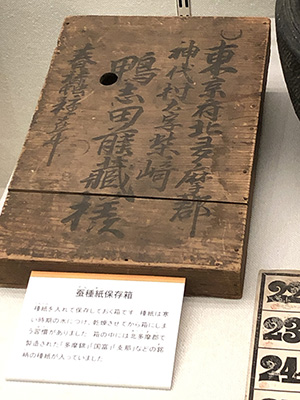 東京府北多摩郡
神代村大字柴崎
鴨志田藏様
蚕種紙保存箱
種紙を入れて保存しておく箱です。種紙は寒
い時期の水につけ、乾燥させてから箱にしま
う習慣がありました。箱の中には北多摩郡で
製造された「多摩錦」「国富」「支那」などの銘
柄の種紙が入っていました
23
24